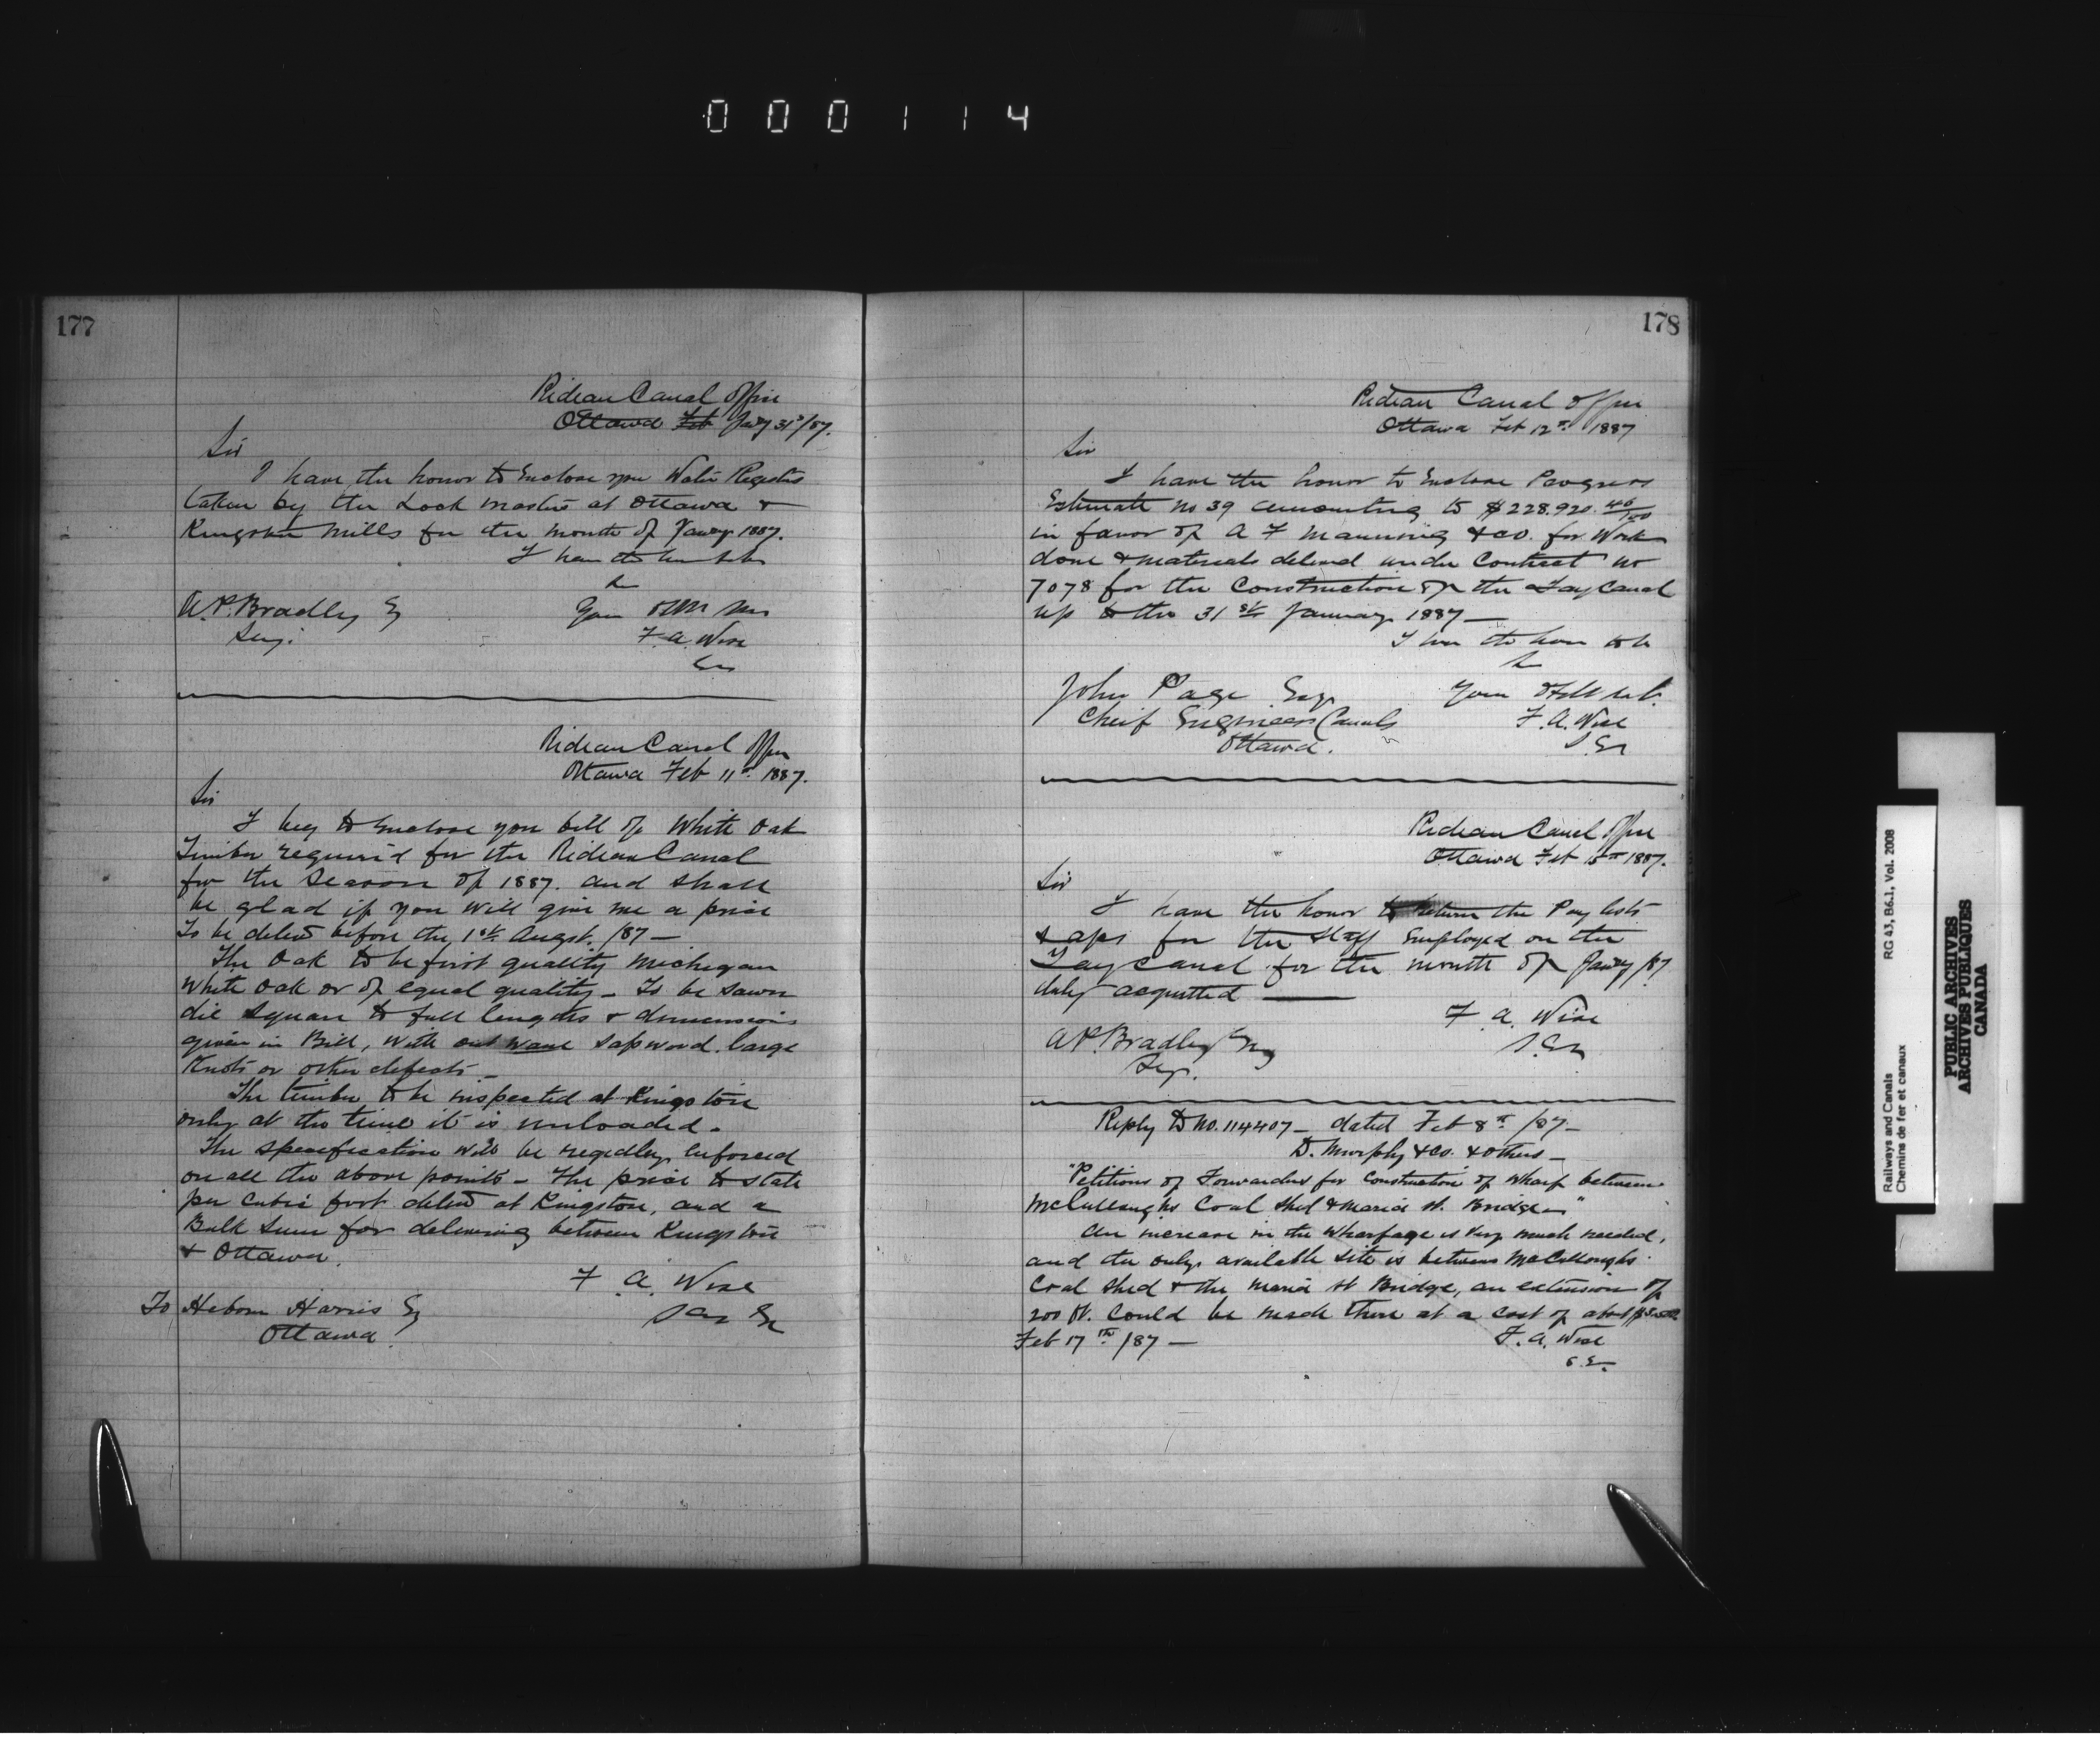 000114
177
Rideau Canal Office
Ottawa Feb Jany 31st/87.
Sir
I have the honor to Enclose you Water Registers
taken by the Lock masters at Ottawa &
Kingston Mills for the month of Jany 1887.
I have the honor to be
Sir
A.P. Bradley Esq
Secy.
Your Obt Servt
F. A. Wise
Rideau Canal Office
Ottawa Feb 11th 1887.
Sir
I beg to Enclose you bill of White Oak
Timber required for the Rideau Canal
for the Season of 1887. and shall
be glad if you will give me a price
To be delivd before the 1st Augst. /87 —
The Oak to be first quality Michigan
White Oak or of equal quality — To be sawn
die square to full lengths & dimensions
given in Bill, with out wane sapwood. large
Knots or other defects —
The timber to be inspected at Kingston
only at the time it is unloaded.
The specification will be regidly enforced
on all the above points — The price to state
per cubic foot delivd at Kingston, and a
Bulk Sum for delivering between Kingston
& Ottawa.
F. A. Wise
To Harris Esq
Ottawa
178
Rideau Canal Office
Ottawa Feb 12th 1887
Sir
I have the honor to Enclose Progress
Estimate no 39 amounting to $228.920. 46/100
in favor of A F Manning & Co. for Work
done & materials delivd under Contract no
7078 for the Construction of the Tay Canal
up to the 31st January 1887 —
I have the honor to be
Sir
John Page Esq
Cheif Engineer Canals
Ottawa.
Your Obt
F. A. Wise
S. En
Rideau Canal Office
Ottawa Feb 15th 1887.
Sir
I have the honor to return the Pay lists
for the staff Employed on the
Tay Canal for the month of Jany /87
duly acquitted —
F. A. Wise
S. En
A.P. Bradley Esq
Secy.
Reply to No. 114407 — dated Feb 8th /87 —
D. Murphy & Co. & others —
"Petitions of Forwarders for Construction of Wharf between
McCulloughs Coal Shed & Maria St. Bridge —"
An increase in the Wharfage is very much needed,
and the only available site is between McCulloughs
Coal Shed & the Maria St Bridge, an extension of
200 ft. could be made there at a cost of about
Feb 17th /87 —
F. A. Wise
S. E.
Railways and Canals
Chemins de fer et canaux
RG 43, B6.1, Vol. 2008
PUBLIC ARCHIVES
ARCHIVES PUBLIQUES
CANADA